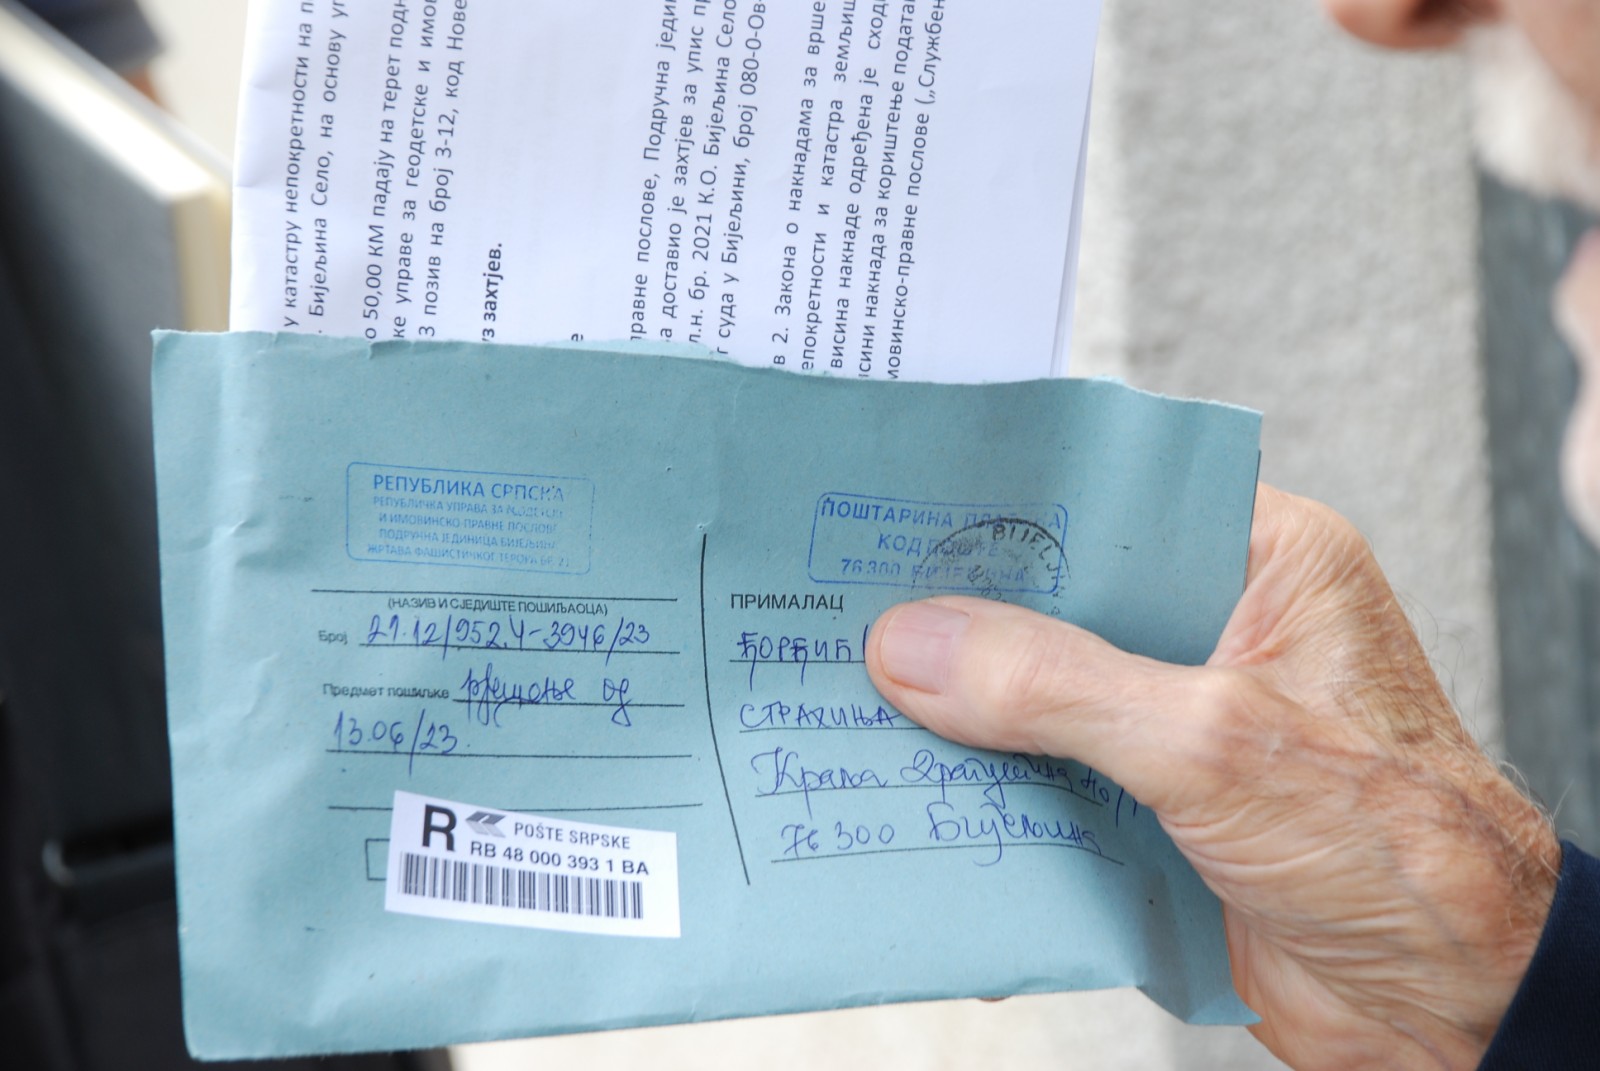 у катастру непокретности на п
. Бијељина Село, на основу уп
о 50,00 КМ падају на терет подн
ке управе за геодетске и имо
3 позив на број 3-12, код Нове
уз захтјев.
е
правне послове, Подручна једин
а доставио је захтјев за упис пр
л.н. бр. 2021 К.О. Бијељина Село
г суда у Бијељини, број 080-0-Ов-
в 2. Закона о накнадама за врше
епокретности и катастра земљиш
висина накнаде одређена је сход
исини накнада за кориштење податак
мовинско-правне послове („Службен
РЕПУБЛИКА СРПСКА
РЕПУБЛИЧКА УПРАВА ЗА ГЕОДЕТСКЕ
И ИМОВИНСКО-ПРАВНЕ ПОСЛОВЕ
ПОДРУЧНА ЈЕДИНИЦА БИЈЕЉИНА
ЖРТАВА ФАШИСТИЧКОГ ТЕРОРА БР. 21
(НАЗИВ И СЈЕДИШТЕ ПОШИЉАОЦА)
Број 21.12/952.4-3946/23
Предмет пошиљке рјешење од
13.06/23.
R POŠTE SRPSKE
RB 48 000 393 1 BA
ПОШТАРИНА ПЛАЋЕНА
КОД ПОШТЕ
76300 БИЈЕЉИНА
BIJELJ
ПРИМАЛАЦ
ЂОРЂИЋ
СТРАХИЊА
Краља Драгутина 40/
76 300 Бијељина